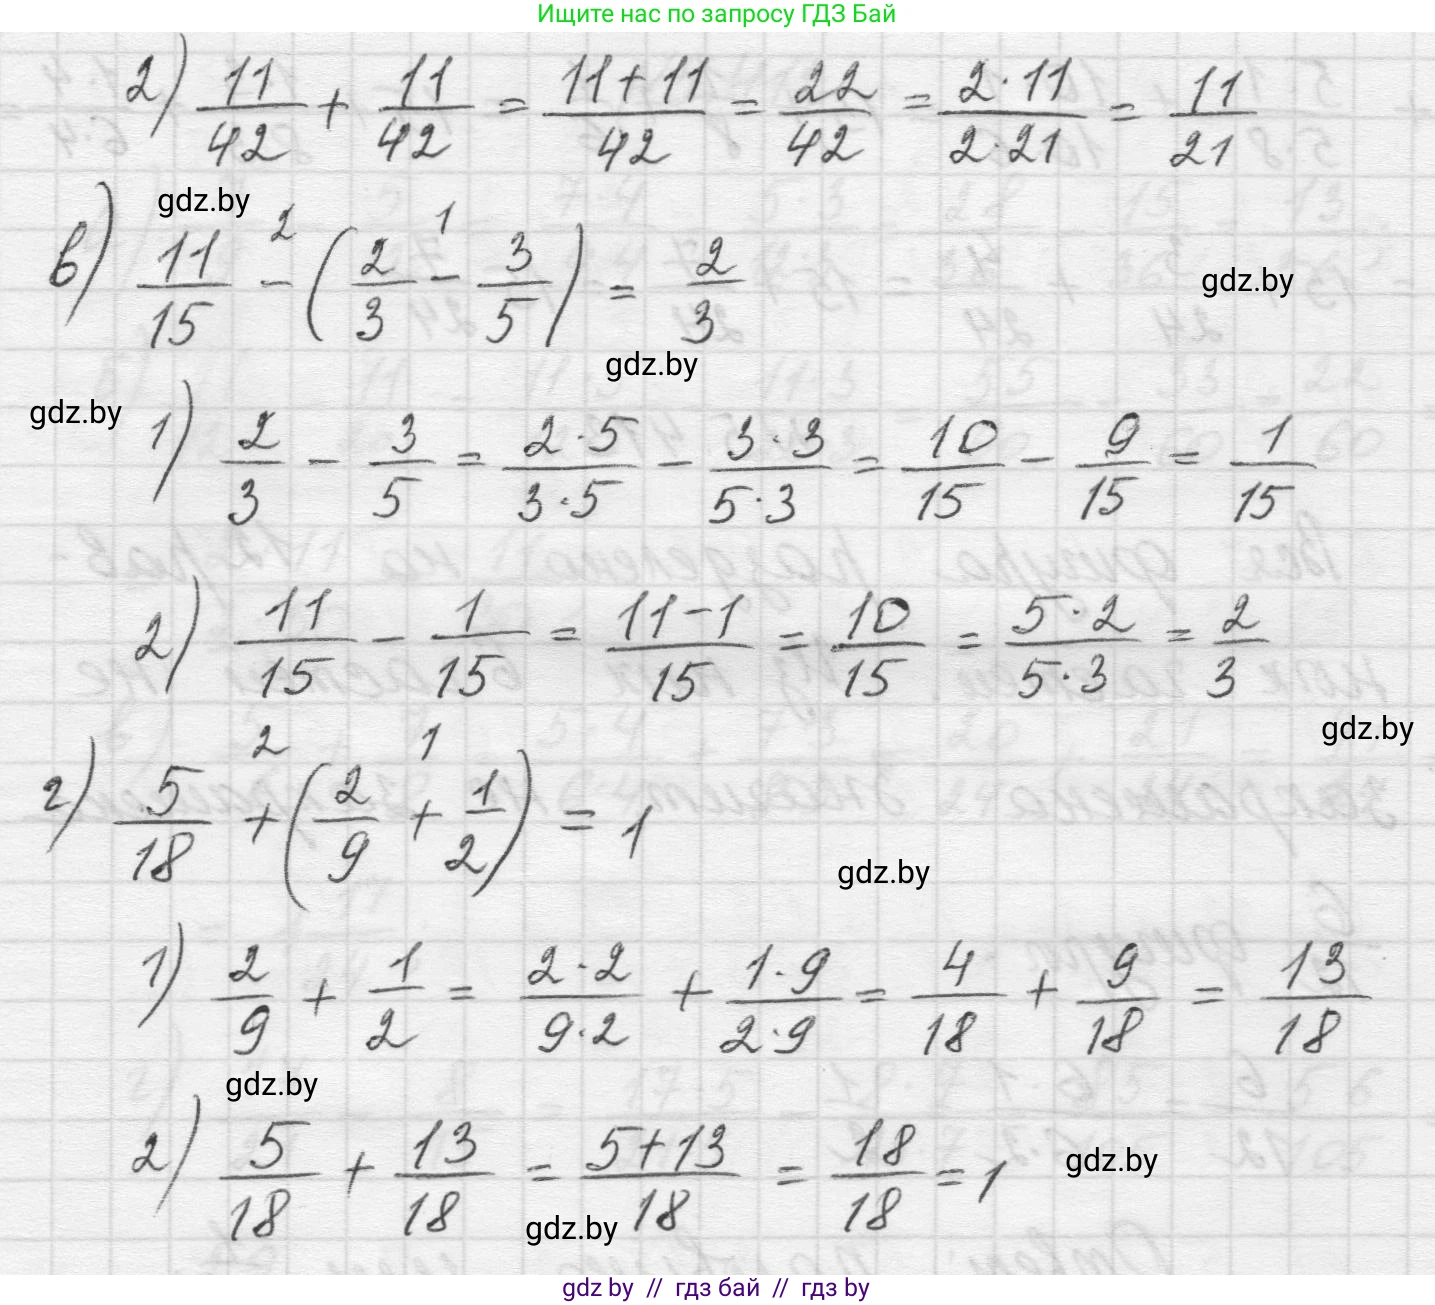 Ищите нас по запросу ГДЗ Бай
2) 11/42 + 11/42 = (11+11)/42 = 22/42 = (2·11)/(2·21) = 11/21
gdz.by
в) 11/15 -² (2/3 -¹ 3/5) = 2/3
gdz.by
gdz.by
gdz.by
1) 2/3 - 3/5 = (2·5)/(3·5) - (3·3)/(5·3) = 10/15 - 9/15 = 1/15
2) 11/15 - 1/15 = (11-1)/15 = 10/15 = (5·2)/(5·3) = 2/3
gdz.by
г) 5/18 +² (2/9 +¹ 1/2) = 1
gdz.by
1) 2/9 + 1/2 = (2·2)/(9·2) + (1·9)/(2·9) = 4/18 + 9/18 = 13/18
gdz.by
2) 5/18 + 13/18 = (5+13)/18 = 18/18 = 1
gdz.by
gdz.by
gdz by // гдз бай // гдз by